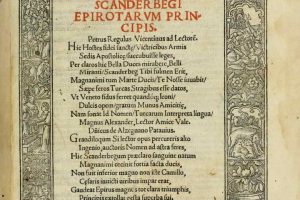 SCANDERBEGI
EPIROTARVM PRIN-
CIPIS.
Petrus Regulus Vicentinus ad Lectorē.
Hic Hostes fidei sanctę Victricibus Armis
Sedis Apostolicę succubuisse leges,
Per claros hic Bella Duces mirabere, Belli
Miranti Scanderbeg Tibi fulmen Erit,
Magnanimi tum Marte Ducis Te Nosse iuuabit
Sæpe feros Turcas Stragibus esse datos,
Vt Veneto fidus feret quandoq;
Dulcis opem gratum Munus Amicitię,
Nam sonat Id Nomen Turcarum Interpreta lingua
Magnus Alexander, Lector Amice Vale.
de Alzegano Patauus.
Grandiloquum Si lector opus percurreris alto
Ingenio, auctoris Nomen ad astra feres,
Hic Scanderbegum præclaro sanguine natum
Magnanimi cernes fortia facta ducis,
Non fuit inferior magno non iste Camillo,
Cæsaris inuicti viribus impar erat,
Gaudeat Epirus magnis tot clara triumphis,
Principis extollat gesta superba sui,